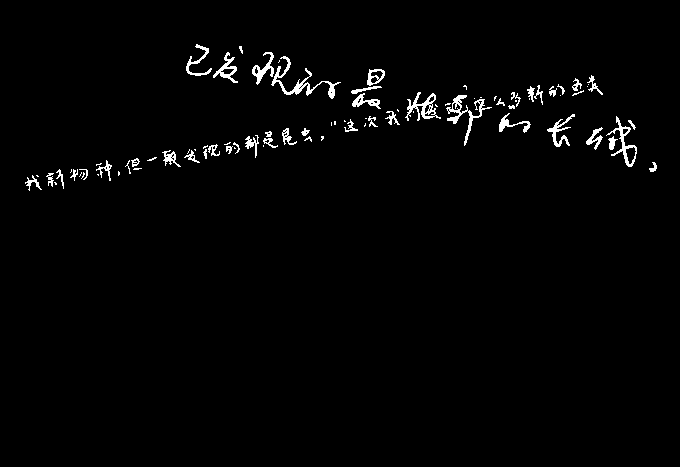 已发现的最北部的长城,
找新物种,但一般发现的都是昆虫,"这次我们发现这么多新的鱼类